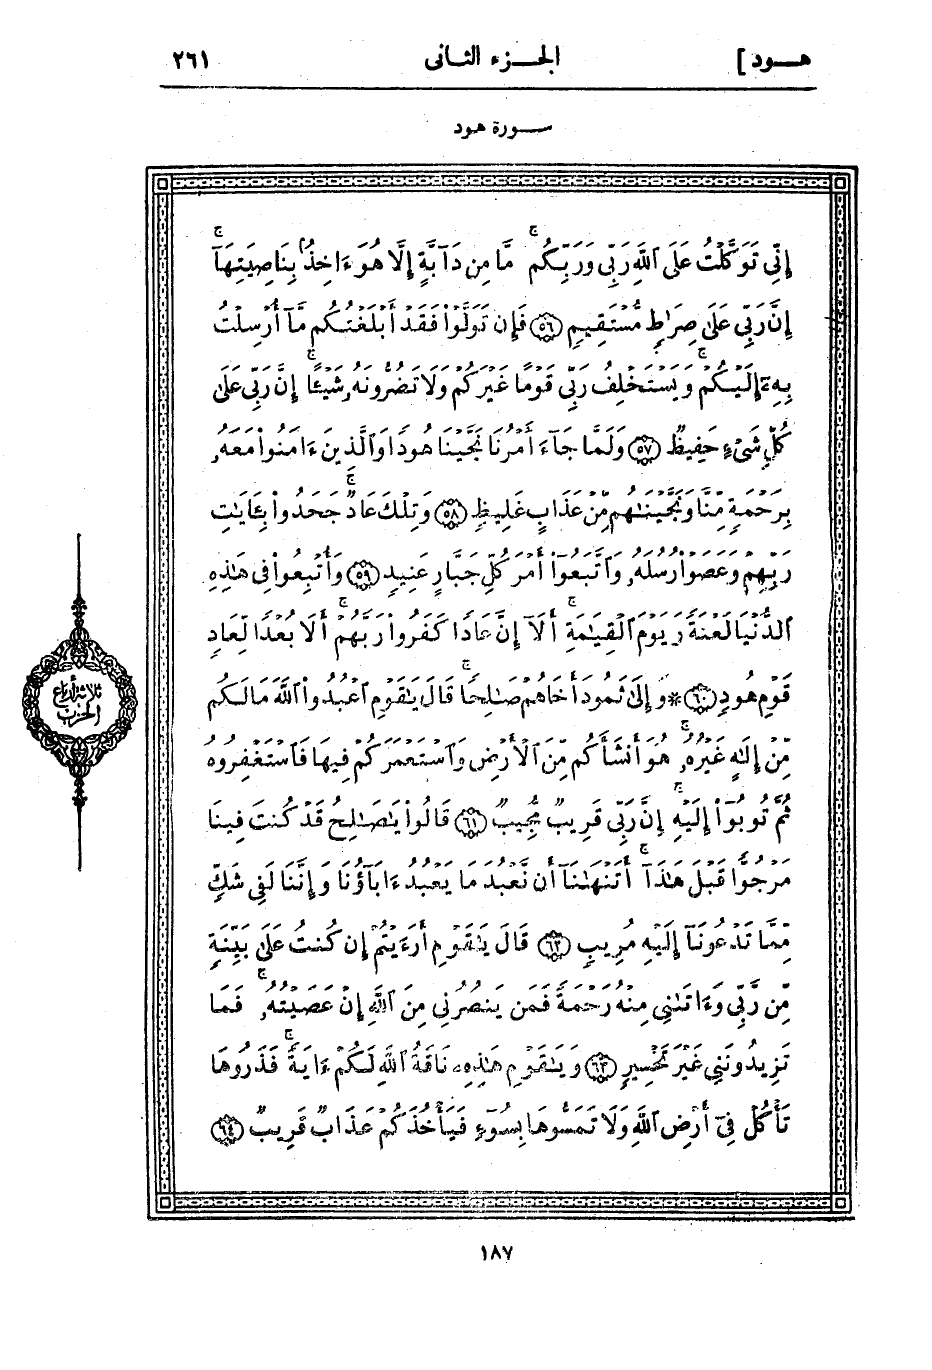 هـود ]
الجـزء الثـانى
٢٦١
سـورة هود
إِنِّى تَوَكَّلْتُ عَلَى ٱللَّهِ رَبِّى وَرَبِّكُمۚ مَّا مِن دَآبَّةٍ إِلَّا هُوَ ءَاخِذُۢ بِنَاصِيَتِهَآۚ
إِنَّ رَبِّى عَلَىٰ صِرَٰطٍ مُّسْتَقِيمٍ ﴿٥٦﴾ فَإِن تَوَلَّوْا۟ فَقَدْ أَبْلَغْتُكُم مَّآ أُرْسِلْتُ
بِهِۦٓ إِلَيْكُمْۚ وَيَسْتَخْلِفُ رَبِّى قَوْمًا غَيْرَكُمْ وَلَا تَضُرُّونَهُۥ شَيْـًٔاۚ إِنَّ رَبِّى عَلَىٰ
كُلِّ شَىْءٍ حَفِيظٌ ﴿٥٧﴾ وَلَمَّا جَآءَ أَمْرُنَا نَجَّيْنَا هُودًا وَٱلَّذِينَ ءَامَنُوا۟ مَعَهُۥ
بِرَحْمَةٍ مِّنَّا وَنَجَّيْنَٰهُم مِّنْ عَذَابٍ غَلِيظٍ ﴿٥٨﴾ وَتِلْكَ عَادٌۖ جَحَدُوا۟ بِـَٔايَٰتِ
رَبِّهِمْ وَعَصَوْا۟ رُسُلَهُۥ وَٱتَّبَعُوٓا۟ أَمْرَ كُلِّ جَبَّارٍ عَنِيدٍ ﴿٥٩﴾ وَأُتْبِعُوا۟ فِى هَٰذِهِ
ٱلدُّنْيَا لَعْنَةً وَيَوْمَ ٱلْقِيَٰمَةِۚ أَلَآ إِنَّ عَادًا كَفَرُوا۟ رَبَّهُمْۚ أَلَا بُعْدًا لِّعَادٍ
قَوْمِ هُودٍ ﴿٦٠﴾ * وَإِلَىٰ ثَمُودَ أَخَاهُمْ صَٰلِحًاۚ قَالَ يَٰقَوْمِ ٱعْبُدُوا۟ ٱللَّهَ مَا لَكُم
مِّنْ إِلَٰهٍ غَيْرُهُۥۚ هُوَ أَنشَأَكُم مِّنَ ٱلْأَرْضِ وَٱسْتَعْمَرَكُمْ فِيهَا فَٱسْتَغْفِرُوهُ
ثُمَّ تُوبُوٓا۟ إِلَيْهِۚ إِنَّ رَبِّى قَرِيبٌ مُّجِيبٌ ﴿٦١﴾ قَالُوا۟ يَٰصَٰلِحُ قَدْ كُنتَ فِينَا
مَرْجُوًّا قَبْلَ هَٰذَآۚ أَتَنْهَىٰنَآ أَن نَّعْبُدَ مَا يَعْبُدُ ءَابَآؤُنَا وَإِنَّنَا لَفِى شَكٍّ
مِّمَّا تَدْعُونَآ إِلَيْهِ مُرِيبٍ ﴿٦٢﴾ قَالَ يَٰقَوْمِ أَرَءَيْتُمْ إِن كُنتُ عَلَىٰ بَيِّنَةٍ
مِّن رَّبِّى وَءَاتَىٰنِى مِنْهُ رَحْمَةً فَمَن يَنصُرُنِى مِنَ ٱللَّهِ إِنْ عَصَيْتُهُۥۚ فَمَا
تَزِيدُونَنِى غَيْرَ تَخْسِيرٍ ﴿٦٣﴾ وَيَٰقَوْمِ هَٰذِهِۦ نَاقَةُ ٱللَّهِ لَكُمْ ءَايَةًۚ فَذَرُوهَا
تَأْكُلْ فِىٓ أَرْضِ ٱللَّهِ وَلَا تَمَسُّوهَا بِسُوٓءٍ فَيَأْخُذَكُمْ عَذَابٌ قَرِيبٌ ﴿٦٤﴾
ثلاثة أرباع
الحزب
١٨٧